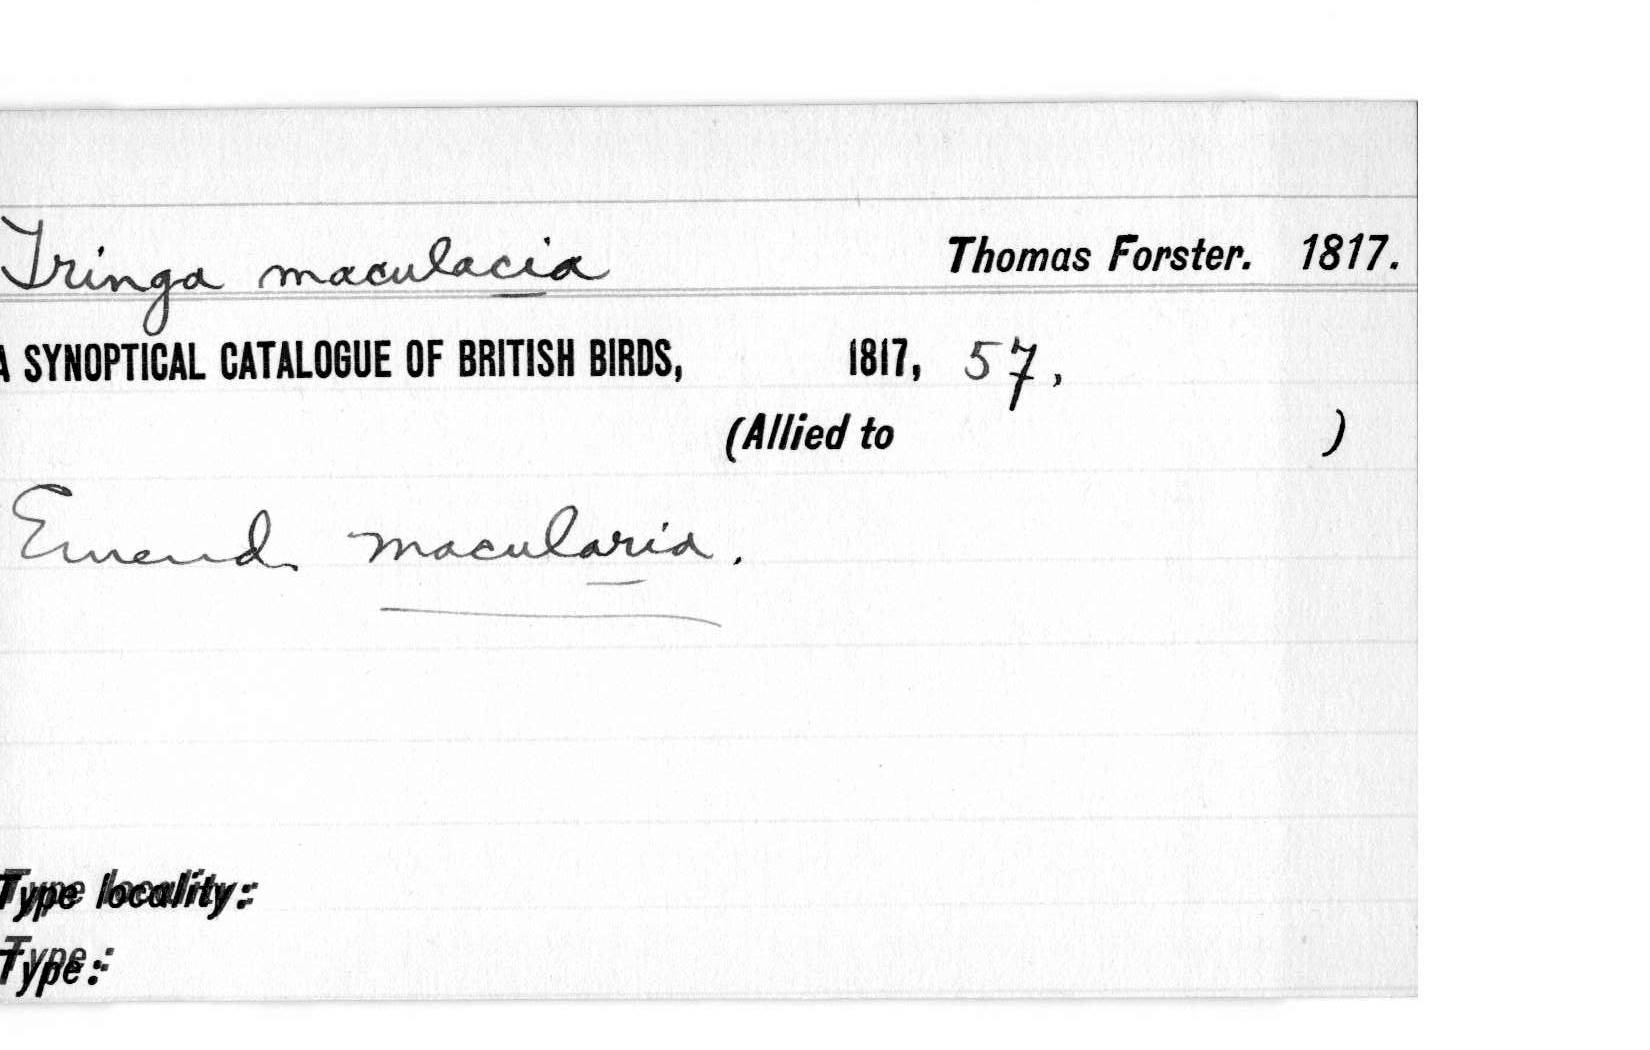 Tringa maculacia Thomas Forster. 1817.
A SYNOPTICAL CATALOGUE OF BRITISH BIRDS, 1817, 57,
(Allied to )
Emend macularia.
Type locality:
Type: